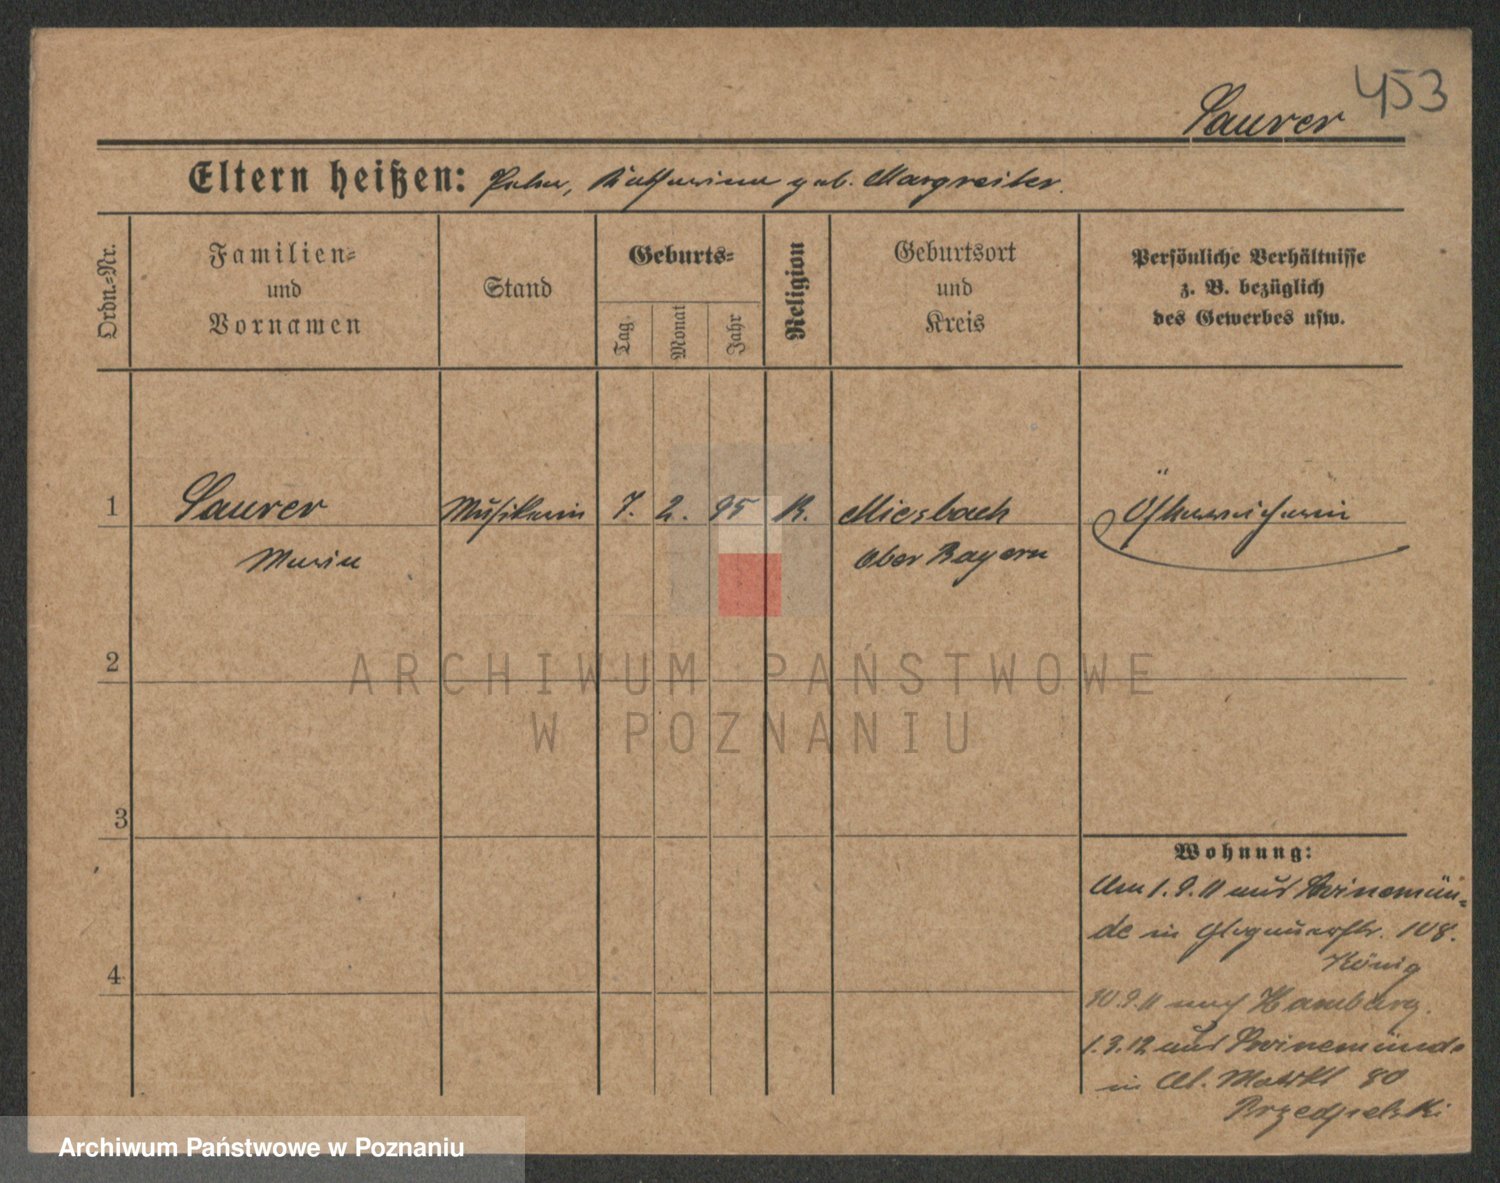 453
Saurer
Eltern heißen: Peter, Katharina geb. Margreiter.
Ordn.-Nr.
Familien- und Vornamen
Stand
Geburts-
Tag
Monat
Jahr
Religion
Geburtsort und Kreis
Persönliche Verhältnisse
z. B. bezüglich
des Gewerbes usw.
1 Saurer Musikerin 7. 2. 95 K. Miesbach Österreicherin
Maria Ober Bayern
2
ARCHIWUM PAŃSTWOWE
W POZNANIU
3
Wohnung:
Am 1.9.11 aus Swinemün-
de in Glogauerstr. 108.
König
4
10.9.11 nach Hamburg.
1.3.12 aus Swinemünde
in Al. Markt 80
Archiwum Państwowe w Poznaniu